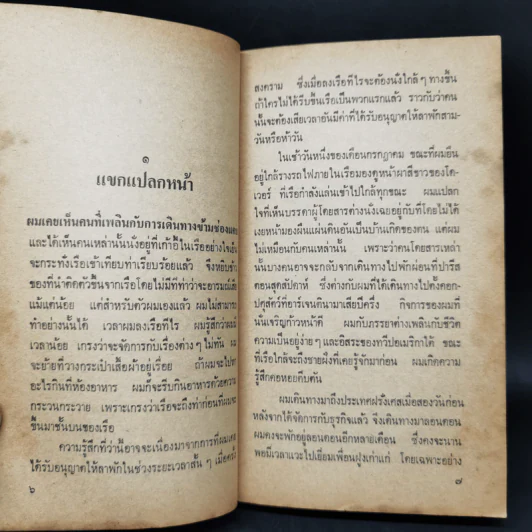 ๑
แขกแปลกหน้า
ผมเคยเห็นคนที่เพลินกับการเดินทางข้ามช่องแคบ
และได้เห็นคนเหล่านั้นนั่งอยู่ที่เก้าอี้ในเรืออย่างใจเย็น
จะกระทั่งเรือเข้าเทียบท่าเรียบร้อยแล้ว จึงหยิบข้าว
ของที่นำติดตัวขึ้นจากเรือโดยไม่มีทีท่าว่าจะอารมณ์เสีย
แม้แต่น้อย แต่สำหรับตัวผมเองแล้ว ผมไม่สามารถ
ทำอย่างนั้นได้ เวลาผมลงเรือทีไร ผมรู้สึกว่าผมมี
เวลาน้อย เกรงว่าจะจัดการกับเรื่องต่างๆ ไม่ทัน ผม
จะย้ายที่วางกระเป๋าเสื้อผ้าอยู่เรื่อย ถ้าผมจะไปหา
อะไรกินที่ห้องอาหาร ผมก็จะรีบกินอาหารด้วยความ
กระวนกระวาย เพราะเกรงว่าเรือจะถึงท่าก่อนที่ผมจะ
ขึ้นมาชั้นบนของเรือ
ความรู้สึกที่ว่านี้อาจจะเนื่องมาจากการที่ผมเคย
ได้รับอนุญาตให้ลาพักในช่วงระยะเวลาสั้น ๆ เมื่อครั้ง
๖
สงคราม ซึ่งเมื่อลงเรือทีไรจะต้องนั่งใกล้ ๆ ทางขึ้น
ถ้าใครไม่ได้รีบขึ้นเรือเป็นพวกแรกแล้ว ราวกับว่าคน
นั้นจะต้องเสียเวลาอันมีค่าที่ได้รับอนุญาตให้ลาพักสาม-
วันหรือห้าวัน
ในเช้าวันหนึ่งของเดือนกรกฎาคม ขณะที่ผมยืน
อยู่ใกล้รางรถไฟภายในเรือมองดูหน้าผาสีขาวของโด-
เวอร์ ที่เรือกำลังแล่นเข้าไปใกล้ทุกขณะ ผมแปลก
ใจที่เห็นบรรดาผู้โดยสารต่างนั่งเฉยอยู่กับที่โดยไม่ได้
เงยหน้ามองผืนแผ่นดินอันเป็นบ้านเกิดของตน แต่ผม
ไม่เหมือนกับคนเหล่านั้น เพราะว่าคนโดยสารเหล่า
นั้นบางคนอาจจะกลับจากเดินทางไปพักผ่อนที่ปารีส
ตอนสุดสัปดาห์ ซึ่งต่างกับผมที่ได้เดินทางไปตั้งคอก-
ปศุสัตว์ที่อาร์เจนตินามาเสียปีครึ่ง กิจการของผมที่
นั่นเจริญก้าวหน้าดี ผมกับภรรยาต่างเพลินกับชีวิต
ความเป็นอยู่ง่ายๆ และอิสระของทวีปอเมริกาใต้ ขณะ
ที่เรือใกล้จะถึงชายฝั่งที่เคยรู้จักมาก่อน ผมเกิดความ
รู้สึกคอหอยตีบตัน
ผมเดินทางมาถึงประเทศฝรั่งเศสเมื่อสองวันก่อน
หลังจากได้จัดการกับธุรกิจแล้ว จึงเดินทางมาลอนดอน
ผมคงจะพักอยู่ลอนดอนอีกหลายเดือน ซึ่งคงจะนาน
พอมีเวลาแวะไปเยี่ยมเพื่อนฝูงเก่าแก่ โดยเฉพาะอย่าง
๗